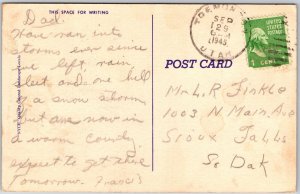 THIS SPACE FOR WRITING
Dad.
Have ran into
storms ever since
we left, rain,
sleet and one hell
of a snow storm
but are now in
a warm county
expect to get
Tomorrow. Francis
SEP
29
1945
UTAH
1 CENT 1
POST CARD
Mr L. R. Finkle
1003 N Main Ave
Sioux Falls
So Dak